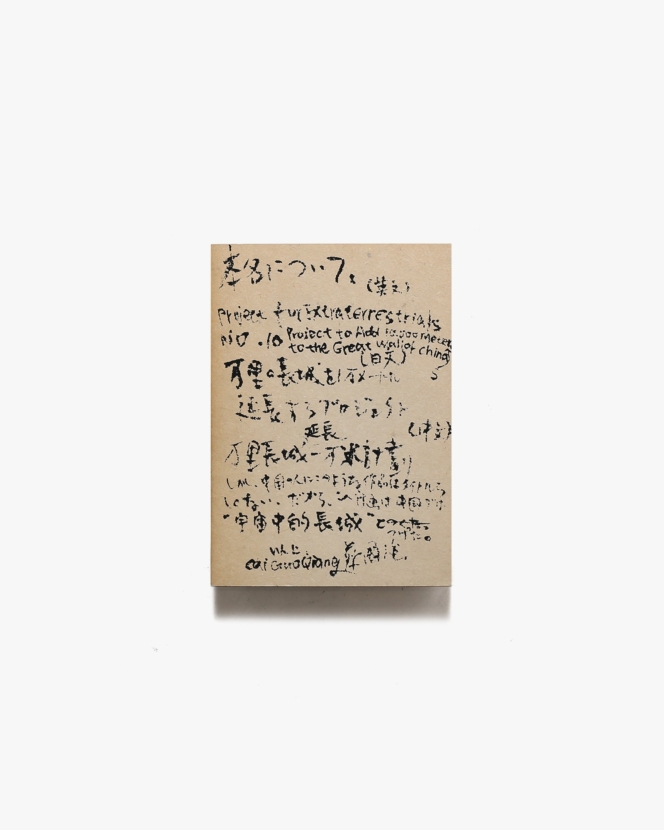 案名について。(英文)
Project for Extraterrestrials
No.10 Project to Add 10.000 Meters
to the Great Wall of China
(日文)
万里の長城を1万メートル
延長するプロジェクト
延長 (中文)
万里長城一万米計劃
しかし、中国の人にこのような作品は
しない、だから、この計画は中国では
"宇宙中的長城"との
つけた。
以上
Cai Guo Qiang 蔡國強